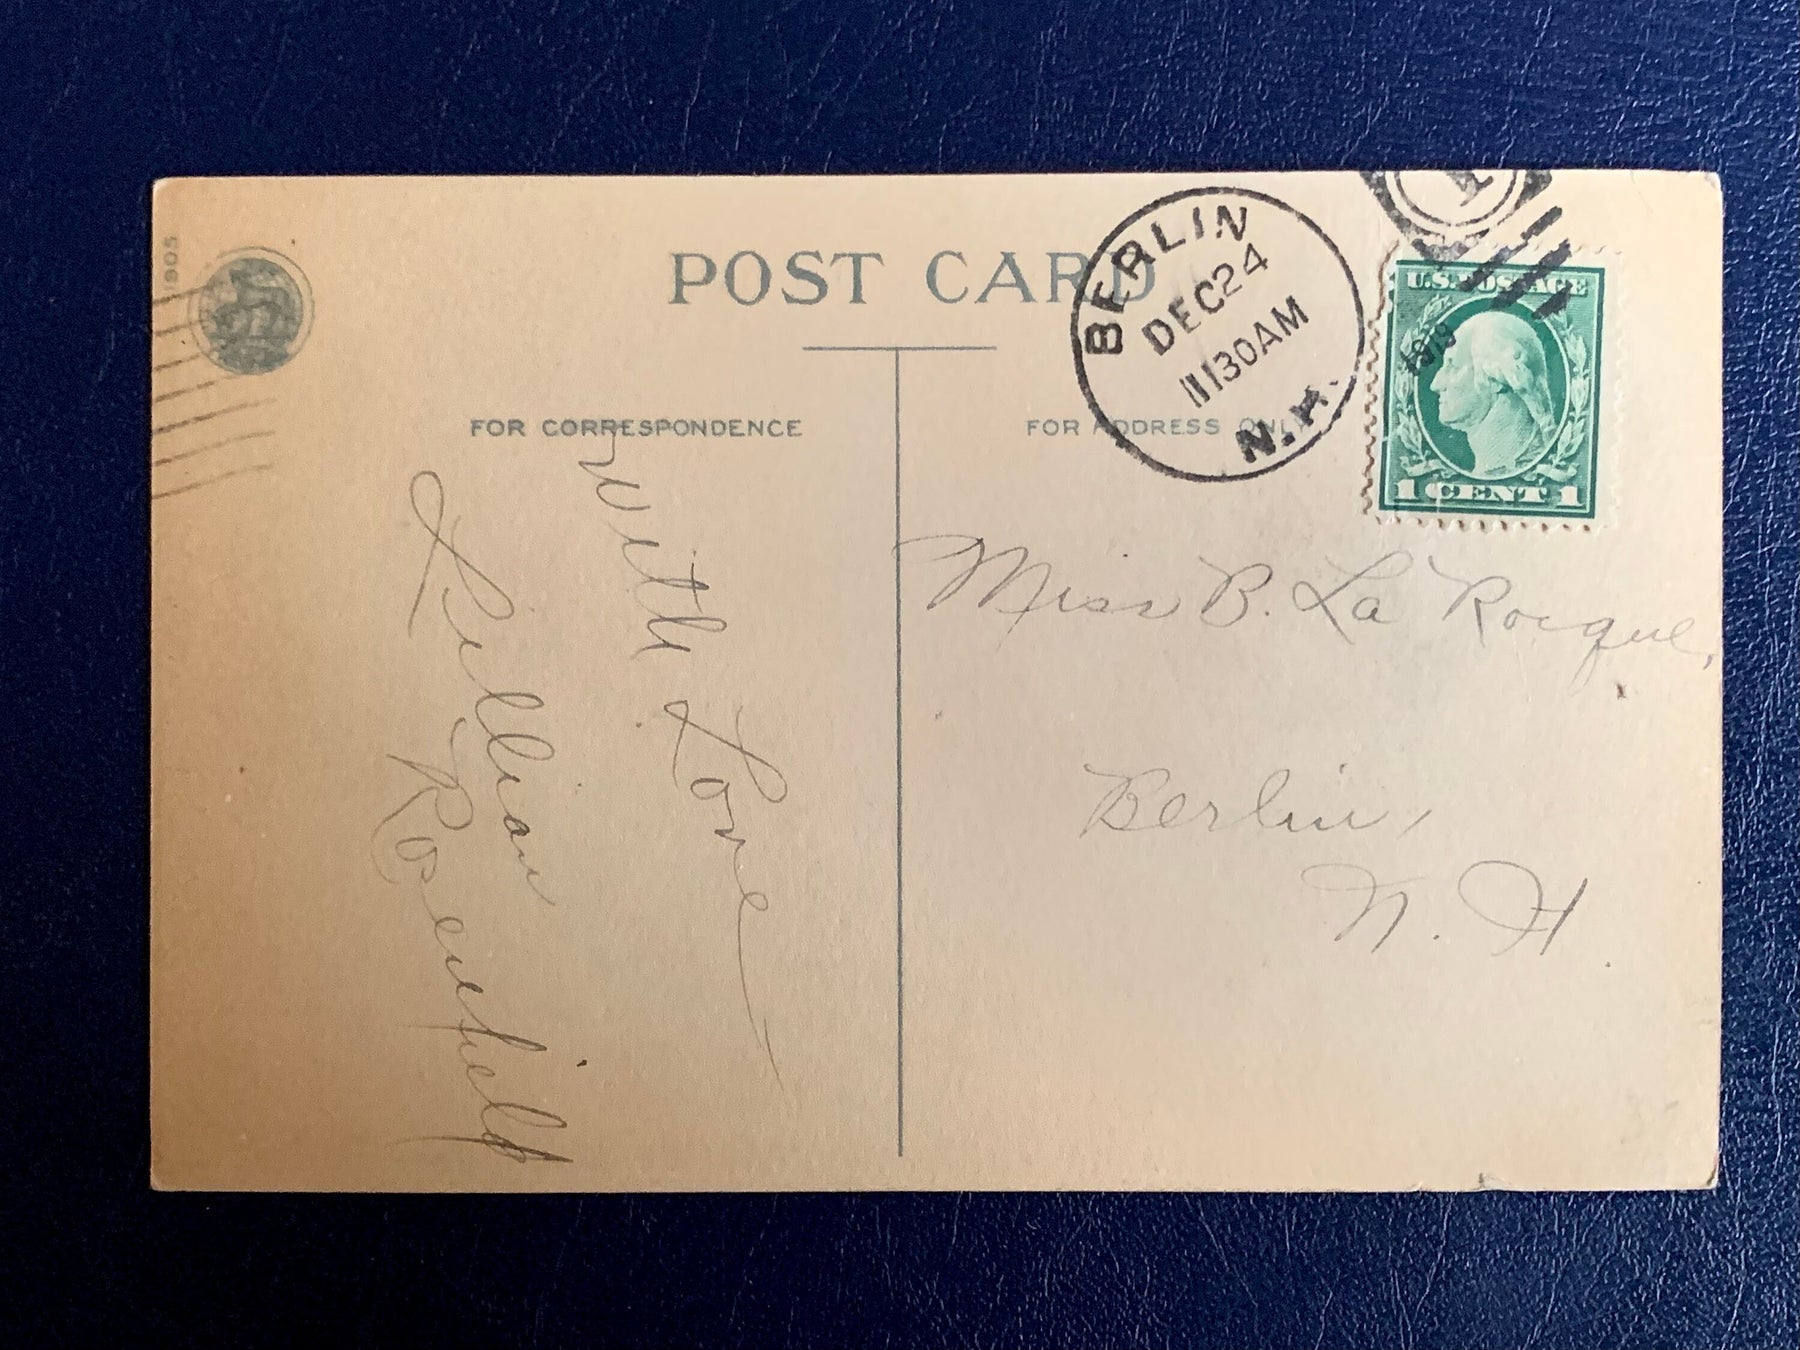 1905
POST CARD
FOR CORRESPONDENCE
FOR ADDRESS ONLY
BERLIN
DEC 24
1130AM
N.H.
1
U.S. POSTAGE
1919
1 CENT 1
With Love
Lillian
Rosenfield
Miss B. La Rocque,
Berlin,
N. H.